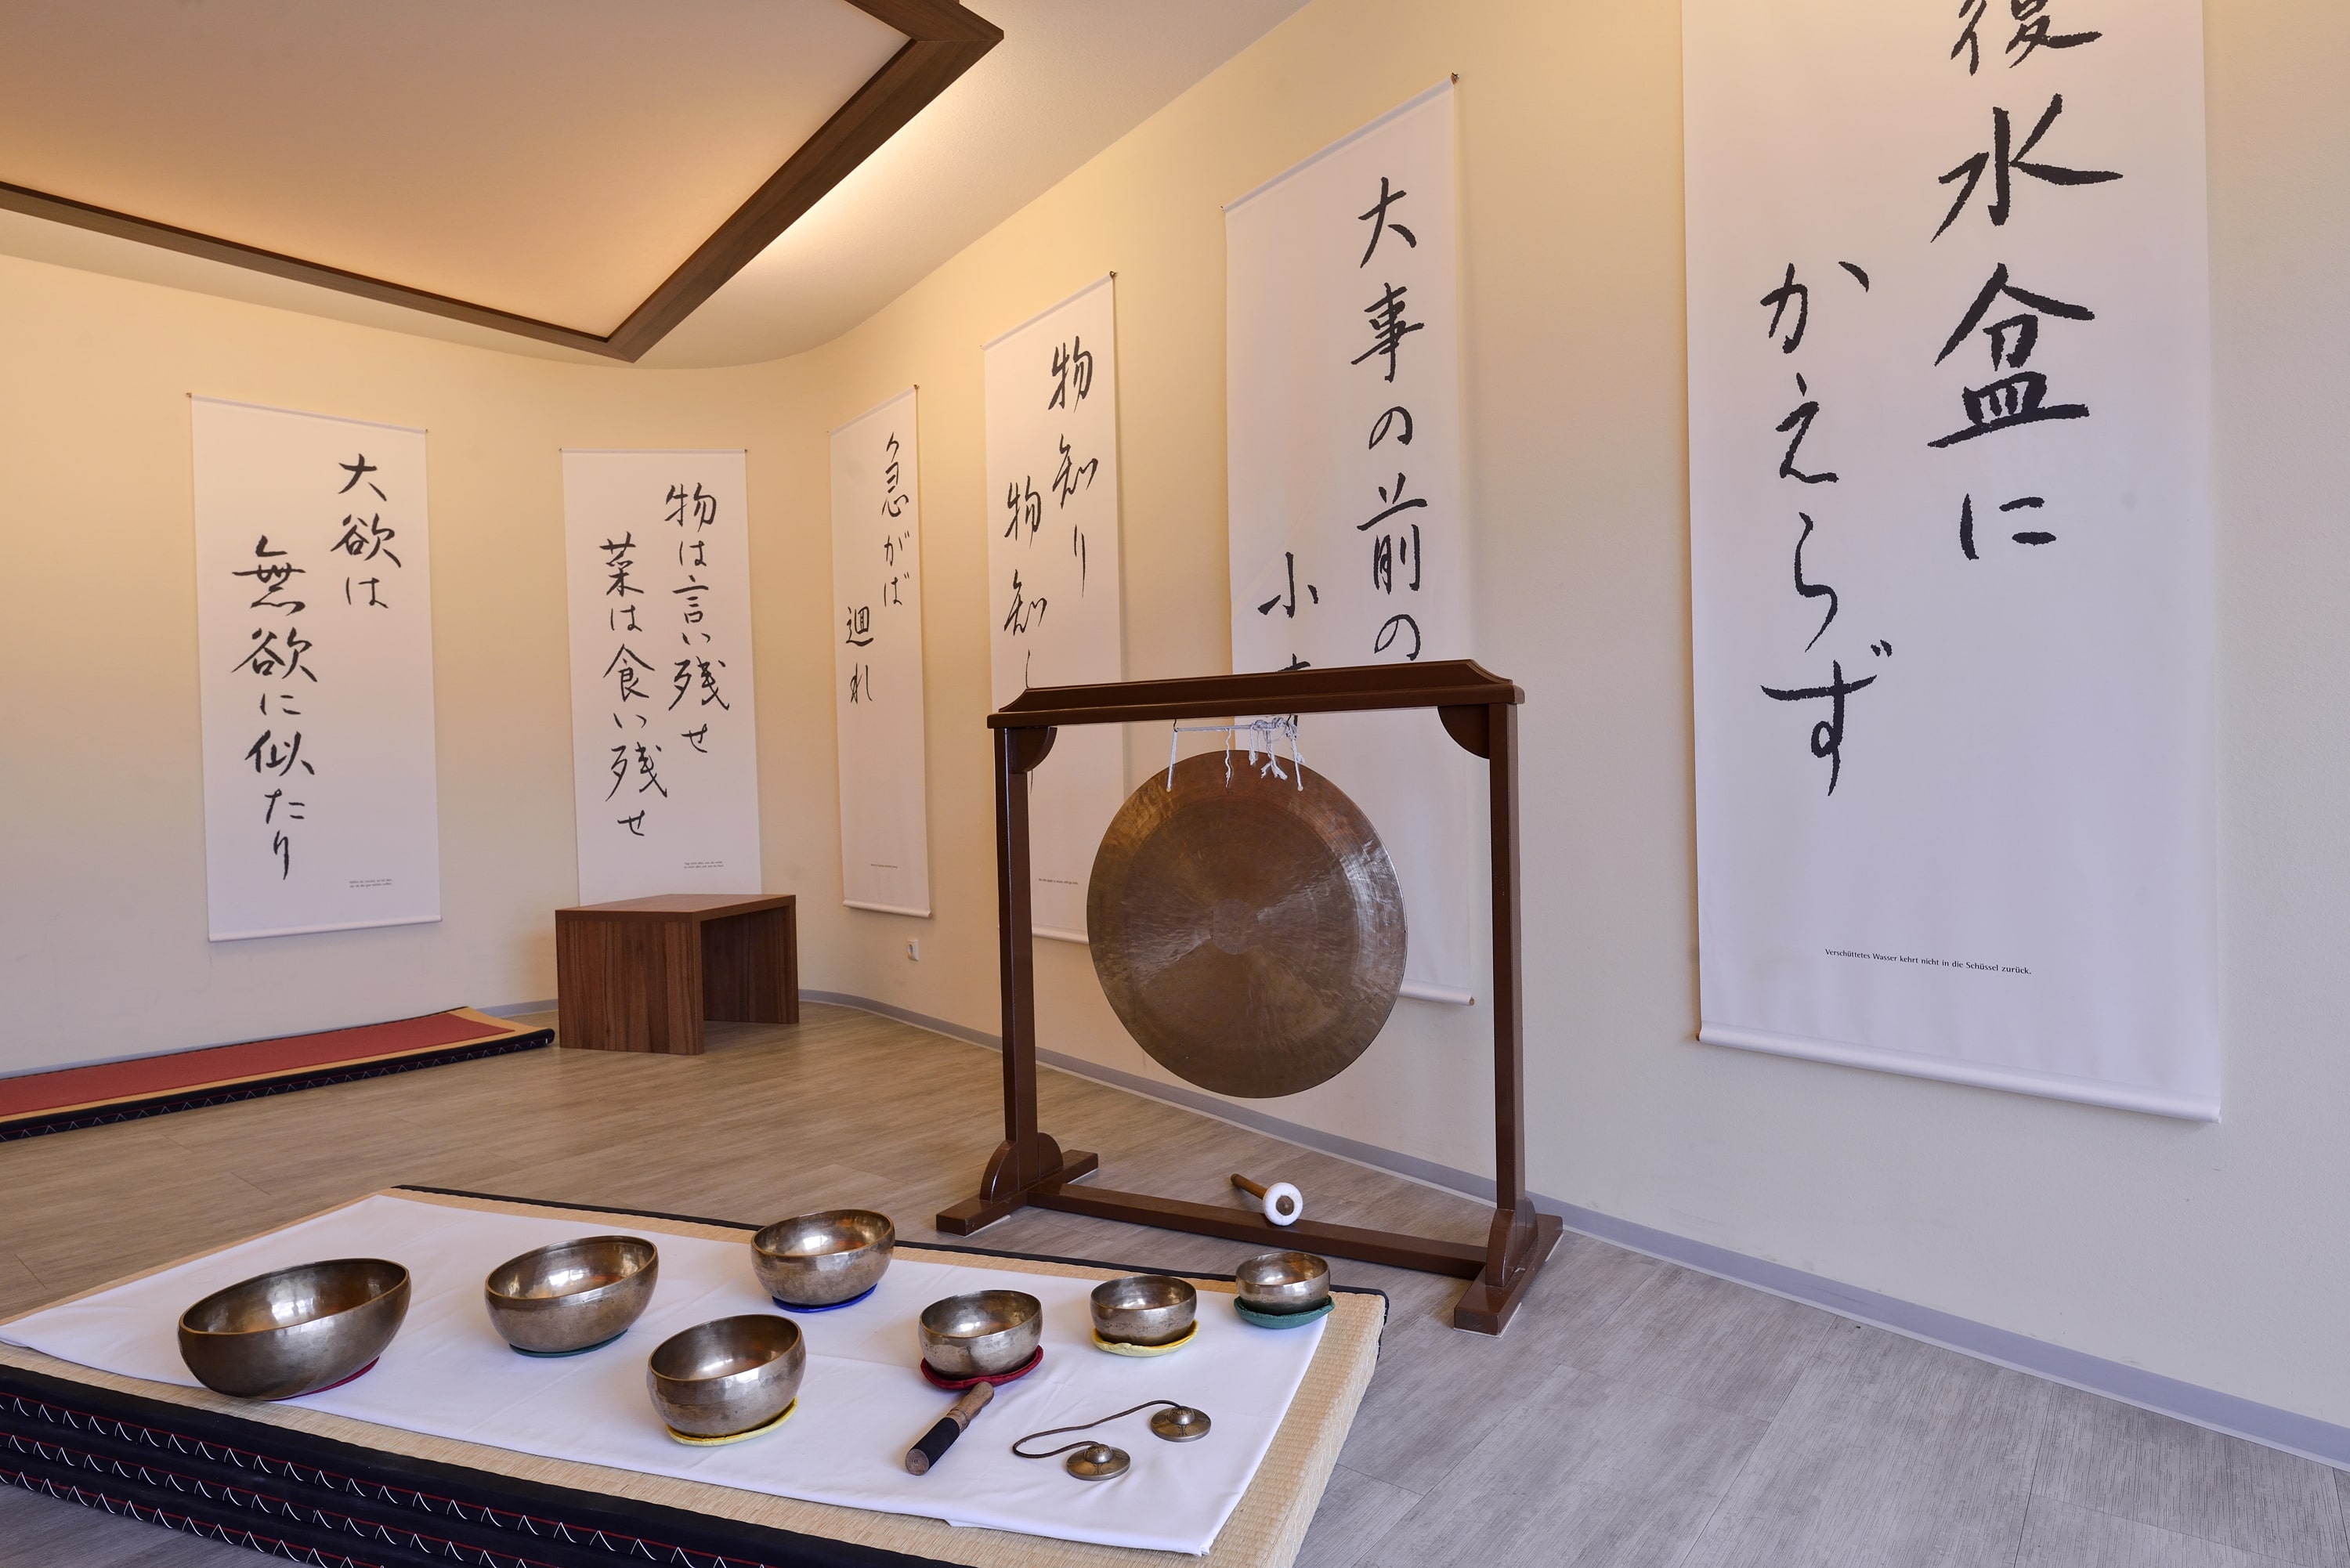 大欲は
無欲に似たり
物は言い残せ
菜は食い残せ
急がば
廻れ
物知り
物知
大事の前の
小
復水盆に
かえらず
Verschüttetes Wasser kehrt nicht in die Schüssel zurück.